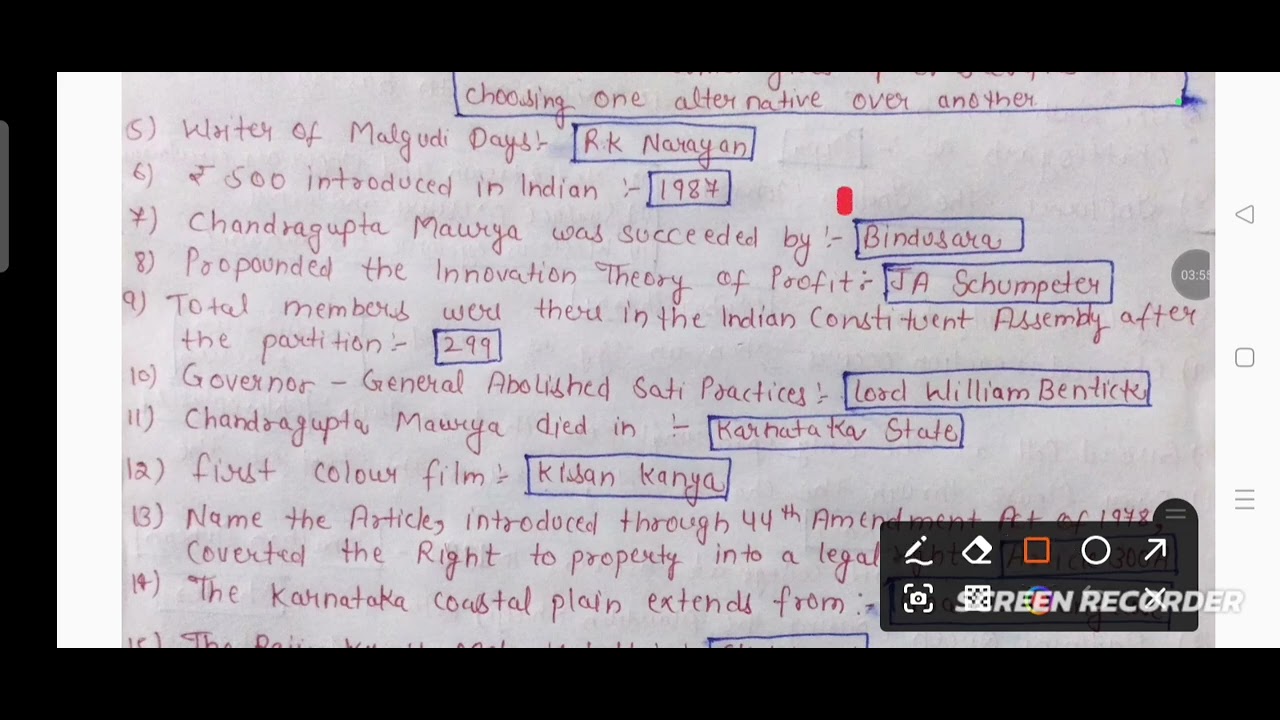 choosing one alternative over another
5) Writer of Malgudi Days:- R.K Narayan
6) ₹ 500 introduced in Indian :- 1987
7) Chandragupta Maurya was succeeded by :- Bindusara
03:55
8) Propounded the Innovation Theory of Profit:- JA Schumpeter
9) Total members were there in the Indian Constituent Assembly after
the partition:- 299
10) Governor - General Abolished Sati Practices:- Lord William Bentick
11) Chandragupta Maurya died in :- Karnataka State
12) first colour film:- Kissan Kanya
13) Name the Article, introduced through 44th Amendment Act of 1978,
Coverted the Right to property into a legal right
14) The Karnataka coastal plain extends from:-
SCREEN RECORDER
15) The